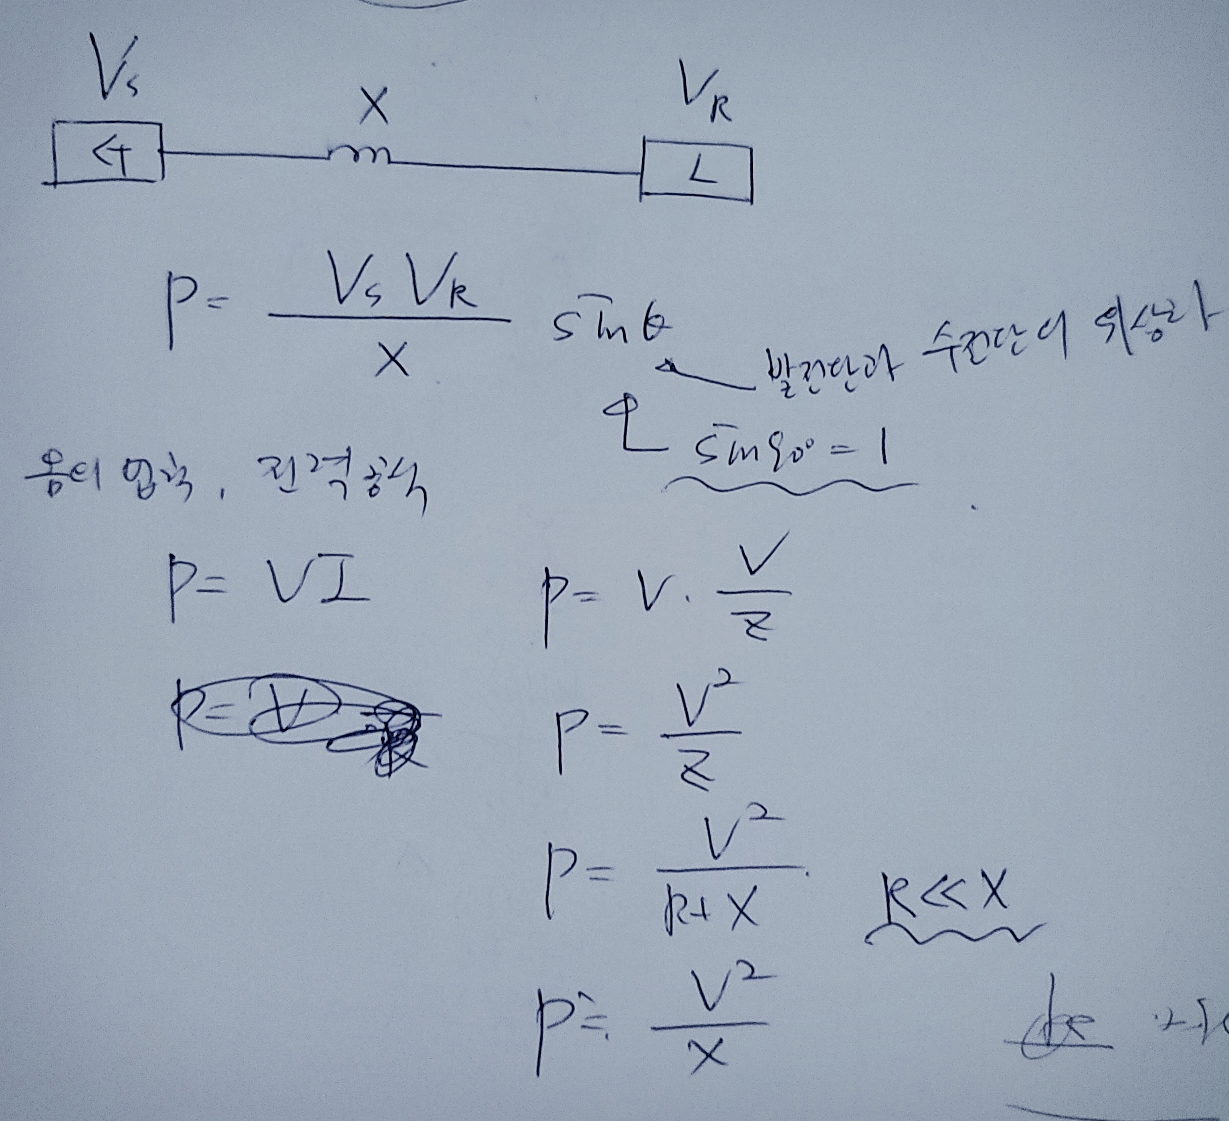 Vs
X
VR
G
L
P = Vs VR / X sinθ
발전단과 수전단의 위상차
sin90° = 1
옴의 법칙, 전력공식
P = VI
P = V · V / Z
P = V² / Z
P = V² / R+X
R << X
P ≒ V² / X